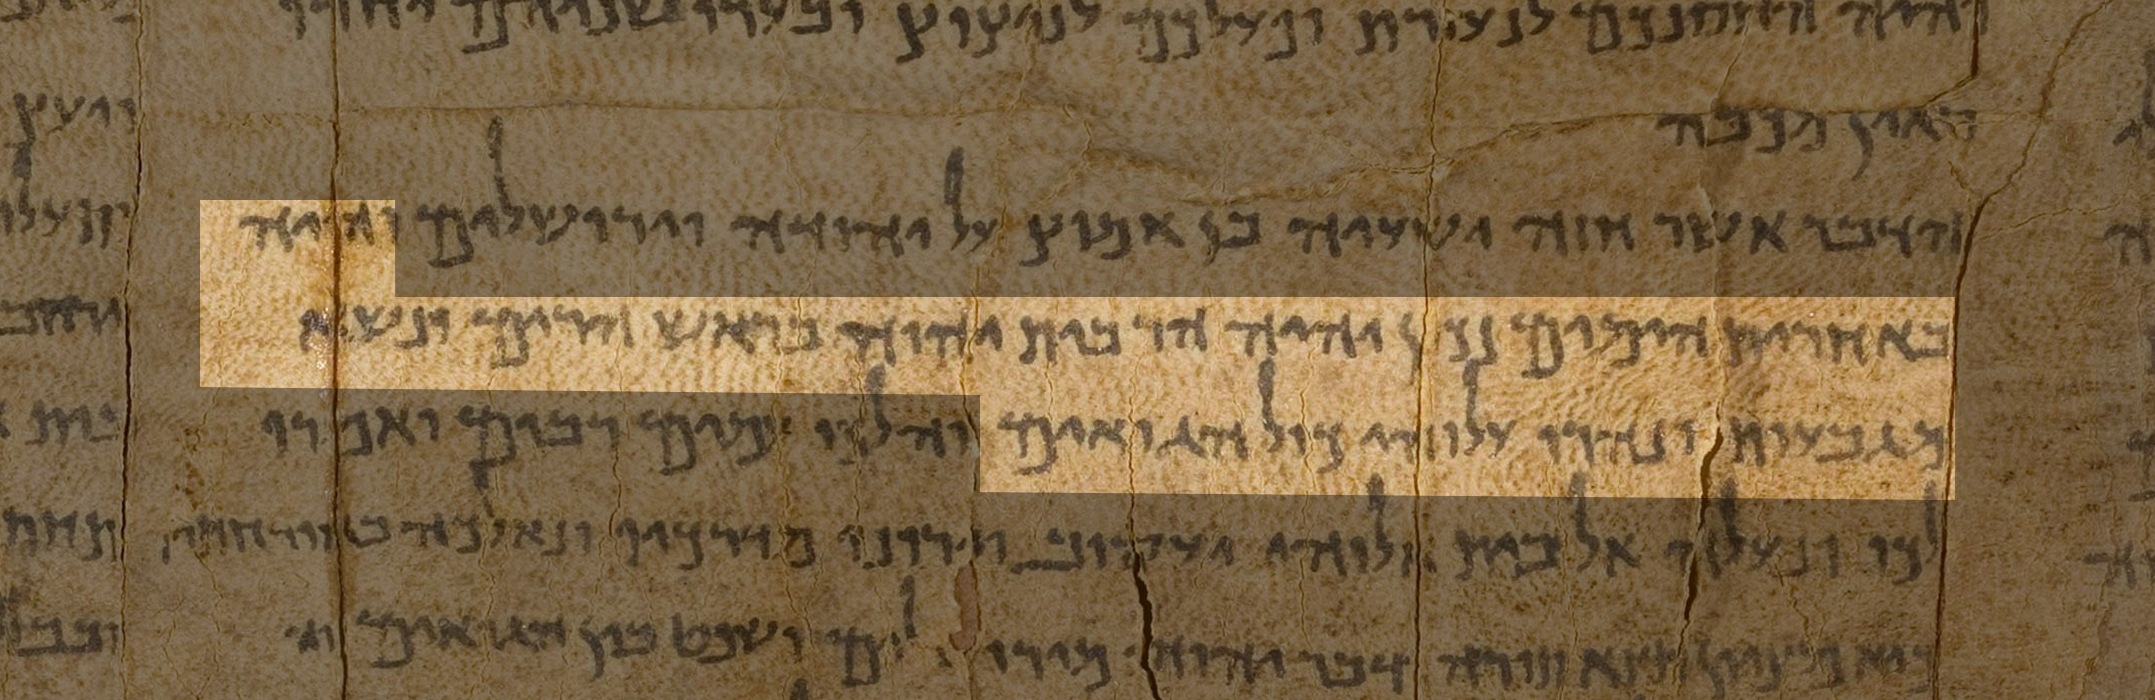 והיה החסנכם לנעורת ופעלכם לניצוץ ובערו שניהם יחדיו
ואין מכבה
הדבר אשר חזה ישעיה בן אמוץ על יהודה וירושלים והיה
באחרית הימים נכון יהיה הר בית יהוה בראש הרים ונשא
מגבעות ונהרו עלוהי כול הגואים והלכו עמים רבים ואמרו
לכו ונעלה אל בית אלוהי יעקוב וירונו מדרכיו ונאלכה באורחתיו
כיא מציון תצא תורה ודבר יהוה מירושלים ושפט בין הגואים